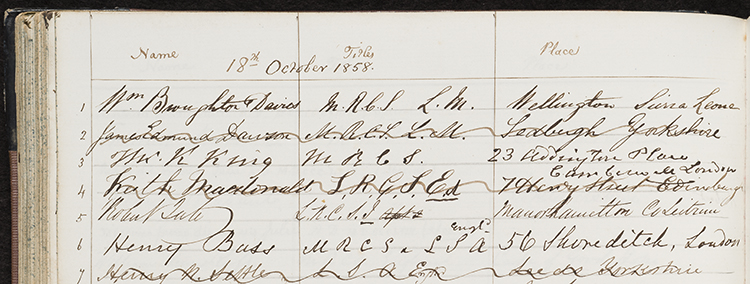 Name Titles Place
18th October 1858.
1 Wm Broughton Davies M.R.C.S L.M. Wellington Sierra Leone
2 James Edmund Dawson M.R.C.S. L.M. Sedbergh Yorkshire
3 King M R C S. 23 Addington Place
Camberwell London
4 Keith Macdonald L.R.C.S. Ed 7 Henry Street Edinburgh
5 Robert L.R.C.S.I Manorhamilton Co Leitrim
6 Henry Bass M R C S & L S A Engl. 56 Shoreditch, London
7 Henry R. L. S. A Leeds Yorkshire